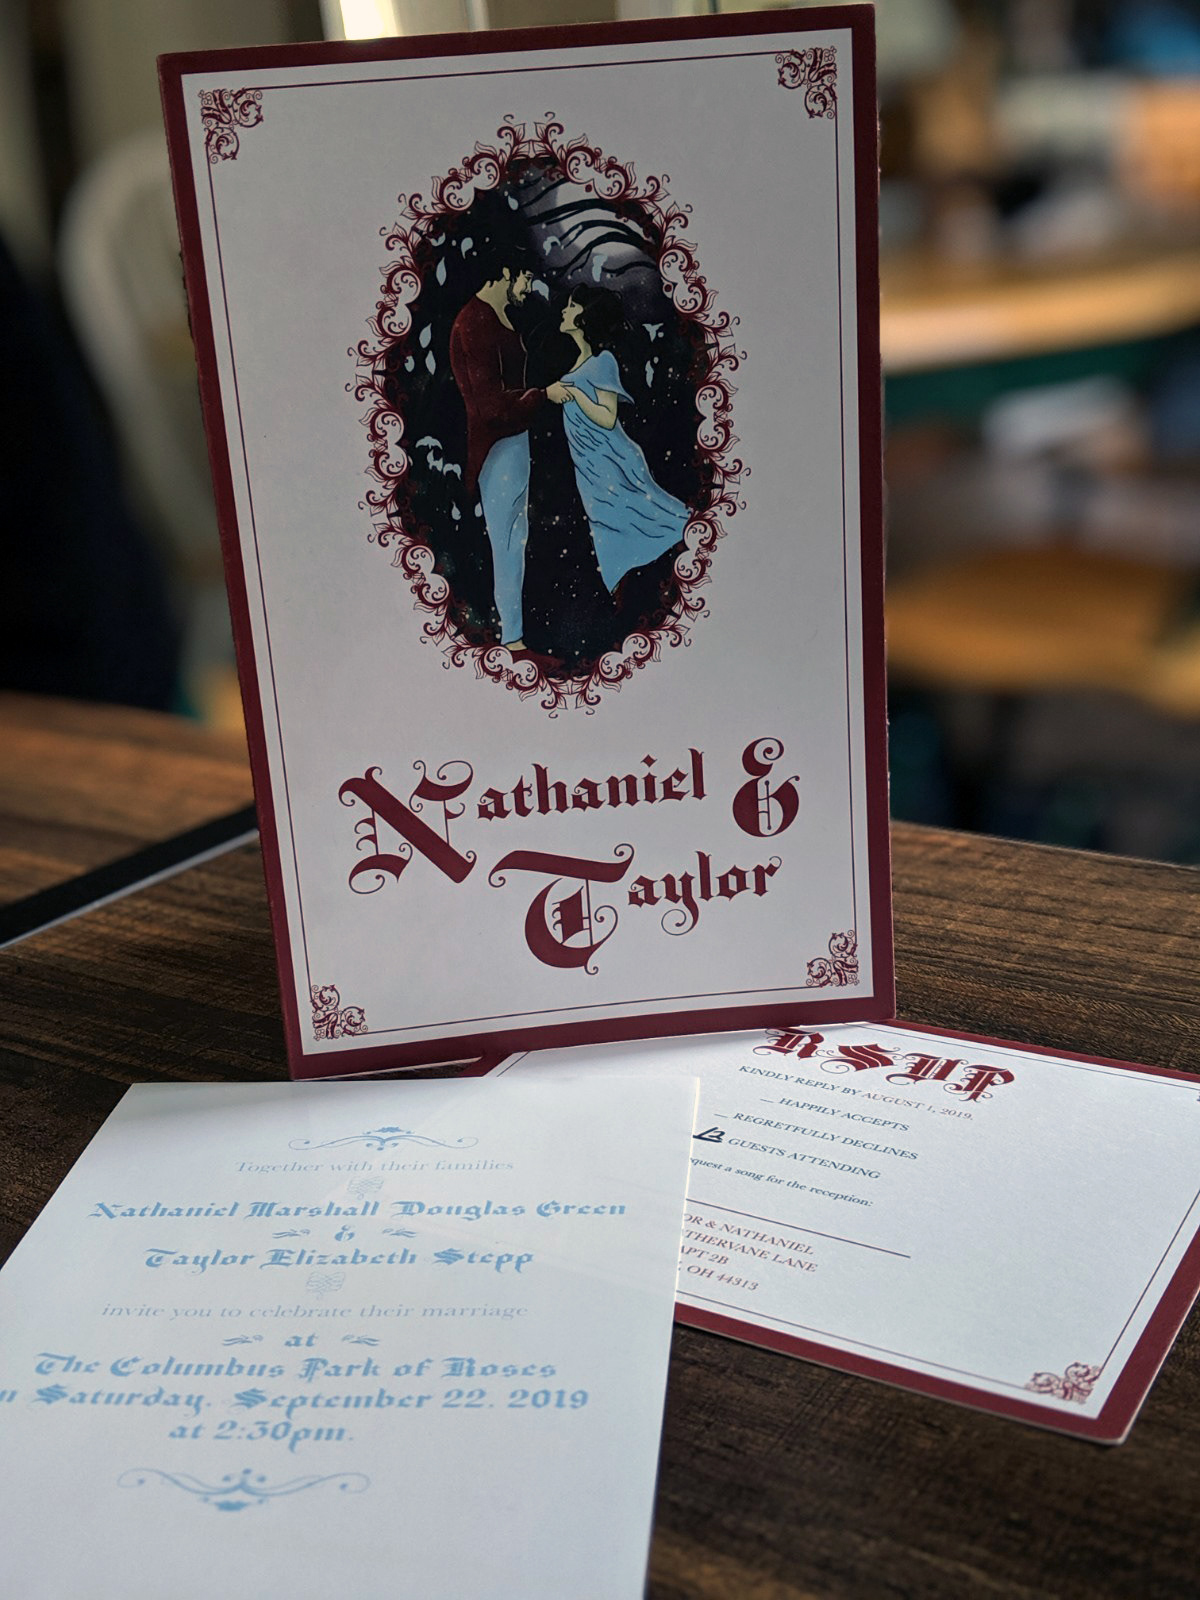 Nathaniel &
Taylor
RSVP
KINDLY REPLY BY AUGUST 1, 2019.
— HAPPILY ACCEPTS
— REGRETFULLY DECLINES
GUESTS ATTENDING
a song for the reception:
& NATHANIEL
LANE
APT 2B
OH 44313
Together with their families
Nathaniel Marshall Douglas Green
&
Taylor Elizabeth Stepp
invite you to celebrate their marriage
at
The Columbus Park of Roses
Saturday, September 22, 2019
at 2:30pm.